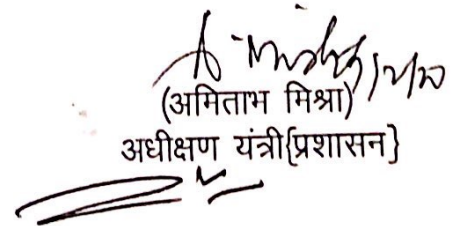 (अमिताभ मिश्रा)
अधीक्षण यंत्री{प्रशासन}